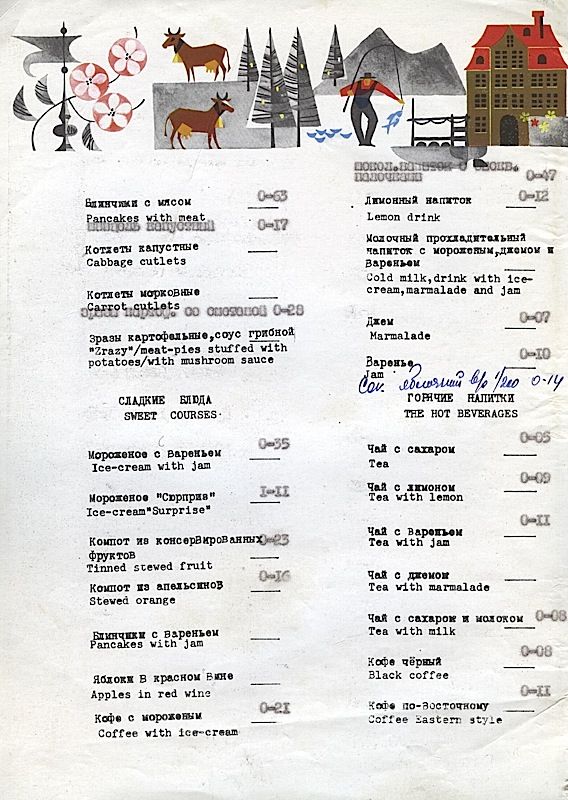 Блинчики с мясом 0-63
Pancakes with meat
капустный 0-17
Котлеты капустные
Cabbage cutlets
Котлеты морковные
Carrot cutlets
со сметаной 0-28
Зразы картофельные,соус грибной
"Zrazy"/meat-pies stuffed with
potatoes/with mushroom sauce
СЛАДКИЕ БЛЮДА
SWEET COURSES
Мороженое с вареньем 0-35
Ice-cream with jam
Мороженое "Сюрприв" 1-11
Ice-cream"Surprise"
Компот из консервированных 0-23
фруктов
Tinned stewed fruit
Компот из апельсинов 0-16
Stewed orange
Блинчики с вареньем
Pancakes with jam
Яблоки в красном вине
Apples in red wine
Кофе с мороженым 0-21
Coffee with ice-cream
0-47
Лимонный напиток 0-12
Lemon drink
Молочный прохладительный
напиток с мороженым,джемом и
вареньем
Cold milk,drink with ice-
cream,marmalade and jam
Джем 0-07
Marmalade
Варенье 0-10
Jam
Сок яблочный 1/200 0-14
ГОРЯЧИЕ НАПИТКИ
THE HOT BEVERAGES
Чай с сахаром 0-05
Tea
Чай с лимоном 0-09
Tea with lemon
Чай с вареньем 0-11
Tea with jam
Чай с джемом
Tea with marmalade
Чай с сахаром и молоком 0-08
Tea with milk
Кофе чёрный 0-08
Black coffee
Кофе по-восточному 0-11
Coffee Eastern style